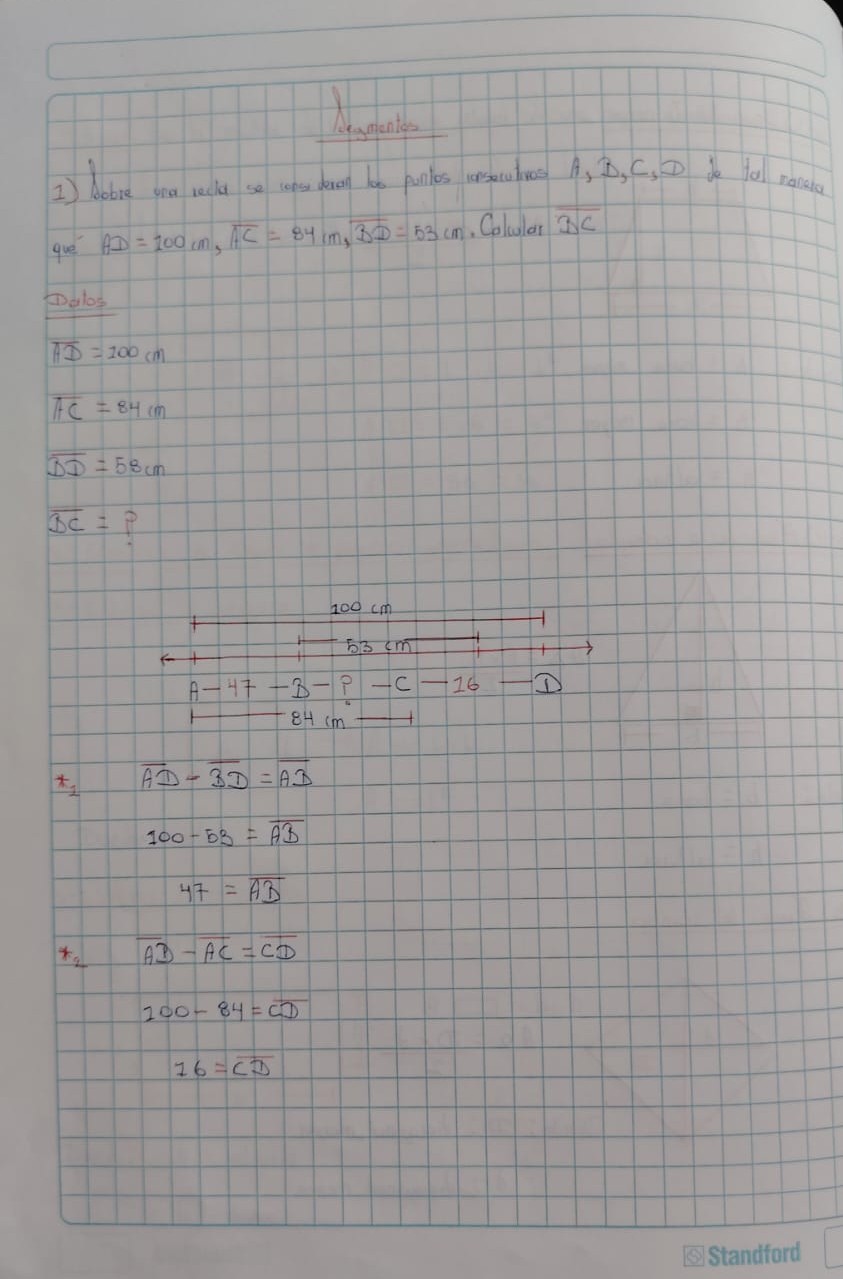 Segmentos
1) Sobre una recta se consideran los puntos consecutivos A, B, C, D de tal manera
que AD = 100 cm, AC = 84 cm, BD = 53 cm. Calcular BC
Datos
AD = 100 cm
AC = 84 cm
BD = 58 cm
BC = ?
100 cm
53 cm
A - 47 - B - ? - C - 16 - D
84 cm
*1 AD - BD = AB
100 - 53 = AB
47 = AB
*2 AD - AC = CD
100 - 84 = CD
16 = CD
Standford